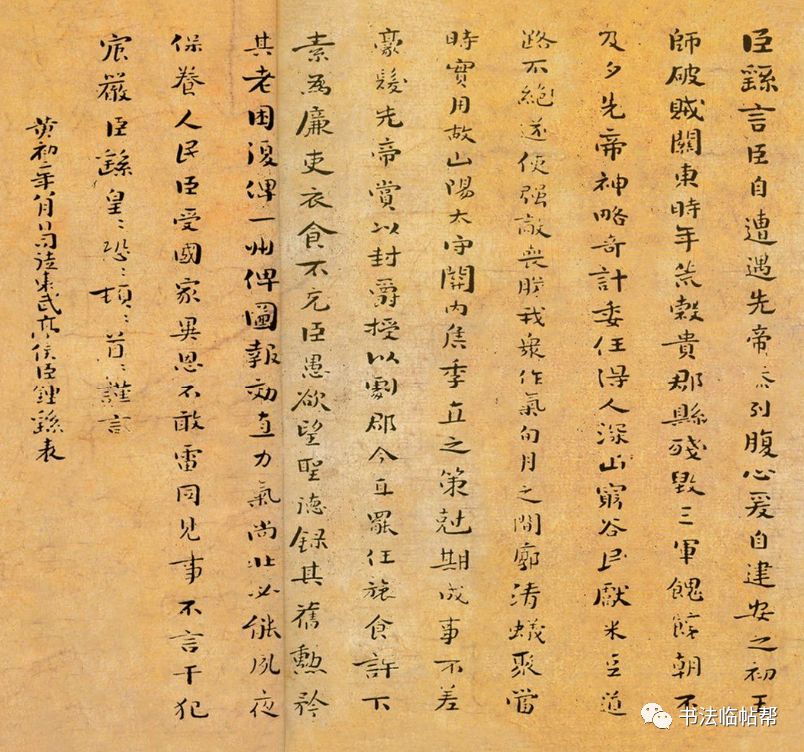 臣繇言臣自遭遇先帝忝列腹心爰自建安之初王
師破賊關東時年荒穀貴郡縣殘毀三軍餽饟朝不
及夕先帝神略奇計委任得人深山窮谷民獻米豆道
路不絕遂使强敵喪膽我衆作氣旬月之間廓清蟻聚當
時實用故山陽太守關内侯季直之策尅期成事不差
豪髮先帝賞以封爵授以劇郡今直罷任旅食許下
素爲廉吏衣食不充臣愚欲望聖德錄其舊勳矜
其老困復俾一州俾圖報効直力氣尚壯必能夙夜
保養人民臣受國家異恩不敢雷同見事不言干犯
宸嚴臣繇皇〻恐〻頓〻首〻謹言
黄初二年八月日司徒東武亭侯臣鍾繇表
书法临帖帮